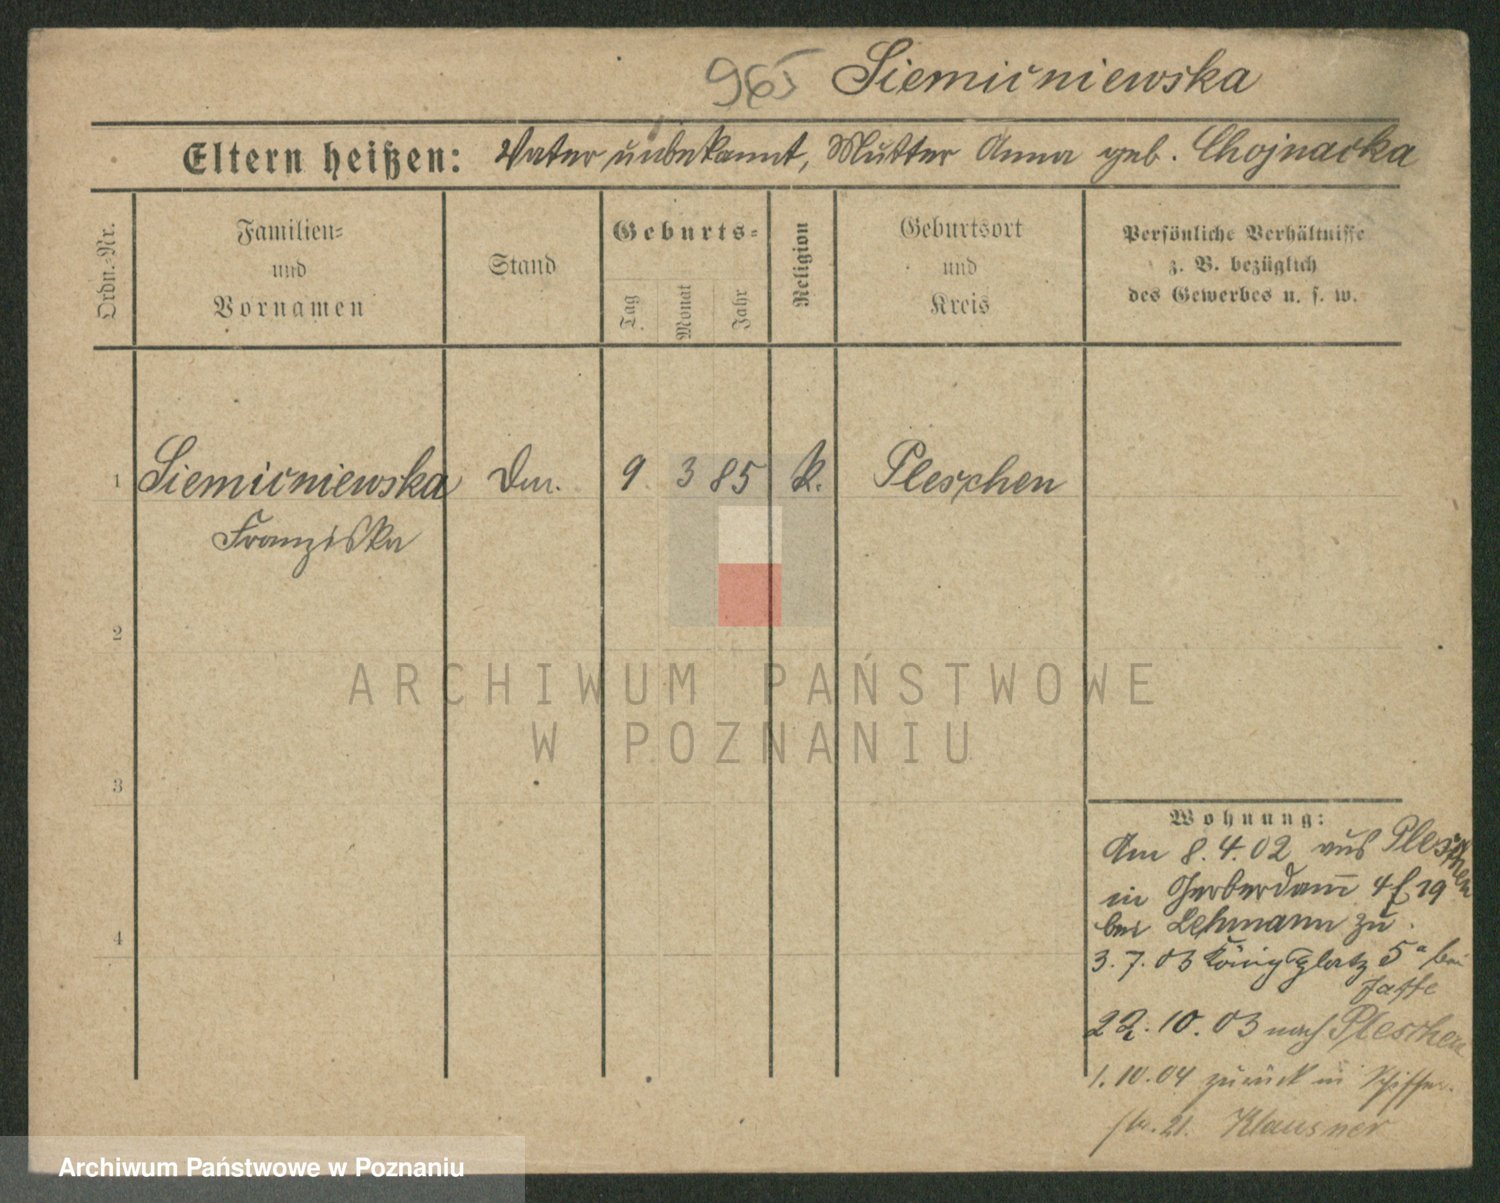 965 Siemieniewska
Eltern heißen: Vater unbekannt, Mutter Anna geb. Chojnacka
Ordn.-Nr.
Familien-
und
Vornamen
Stand
Geburts-
Tag
Monat
Jahr
Religion
Geburtsort
und
Kreis
Persönliche Verhältnisse
z. B. bezüglich
des Gewerbes u. s. w.
1 Siemieniewska 9 3 85 k. Pleschen
Franziska
2
3
4
Wohnung:
Am 8.4.02 aus Pleschen
in Gerberdam̄ 19
bei Lehmann zu.
3.7.03 Königsplatz 5a bei
Jaffe
22.10.03 nach Pleschen
1.10.04 zurück in Schiffer-
str. 21. Klausner
ARCHIWUM PAŃSTWOWE
W POZNANIU
Archiwum Państwowe w Poznaniu